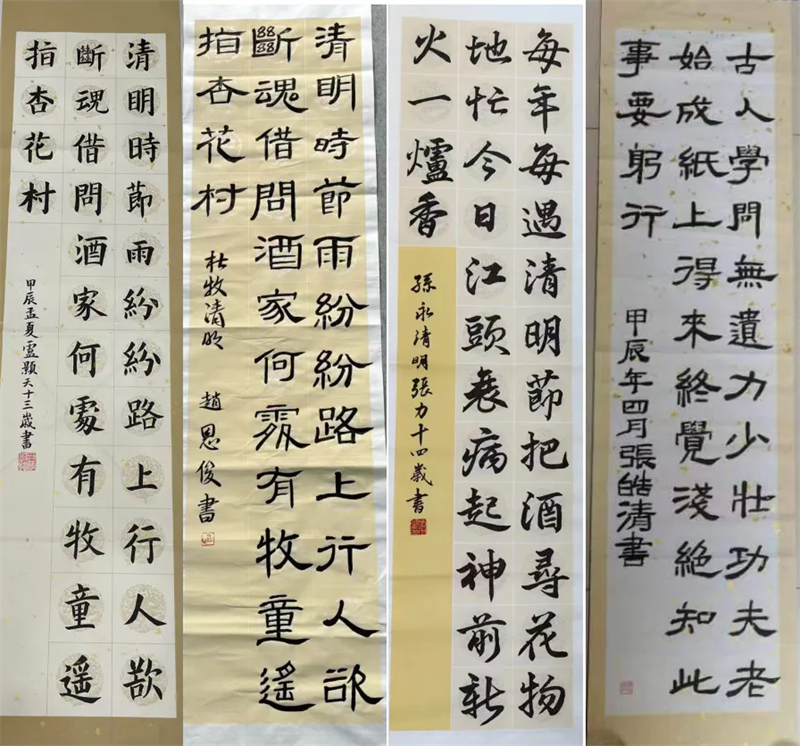 清明時節雨紛紛路上行人欲
斷魂借問酒家何處有牧童遙
指杏花村
甲辰孟夏靈顯天十三歲書
清明時節雨紛紛路上行人欲
斷魂借問酒家何處有牧童遙
指杏花村
杜牧清明 趙恩俊書
每年每遇清明節把酒尋花物
地忙今日江頭衰病起神前新
火一爐香
孫永清明張力十四歲書
古人學問無遺力少壯功夫老
始成紙上得來終覺淺絕知此
事要躬行
甲辰年四月張皓清書